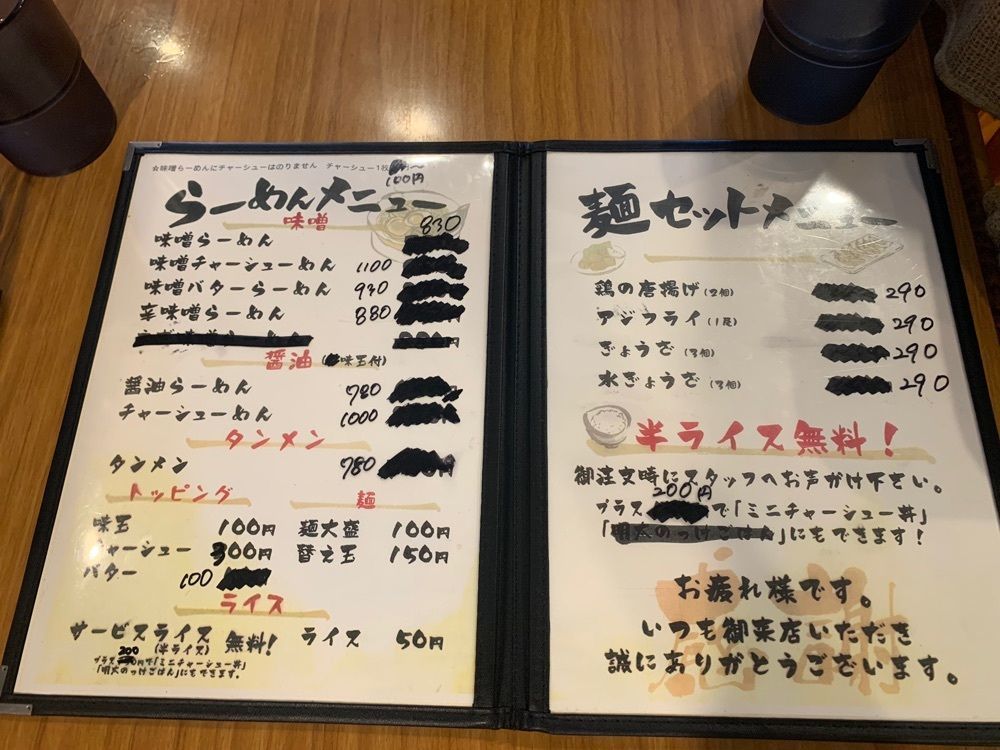 ☆味噌らーめんにチャーシューはのりません チャーシュー1枚
100円
らーめんメニュー
味噌
味噌らーめん 830
味噌チャーシューめん 1100
味噌バターらーめん 930
辛味噌らーめん 880
醤油(味玉付)
醤油らーめん 780
チャーシューめん 1000
タンメン
タンメン 780
トッピング
味玉 100円
チャーシュー 300円
バター 100
麺
麺大盛 100円
替え玉 150円
ライス
サービスライス 無料! ライス 50円
(半ライス)
プラス200円で「ミニチャーシュー丼」
「明太のっけごはん」にもできます。
麺セットメニュー
鶏の唐揚げ(2個) 290
アジフライ(1尾) 290
ぎょうざ(3個) 290
水ぎょうざ(3個) 290
半ライス無料!
御注文時にスタッフへお声がけ下さい。
プラス200円で「ミニチャーシュー丼」
「明太のっけごはん」にもできます!
お疲れ様です。
いつも御来店いただき
誠にありがとうございます。
感謝